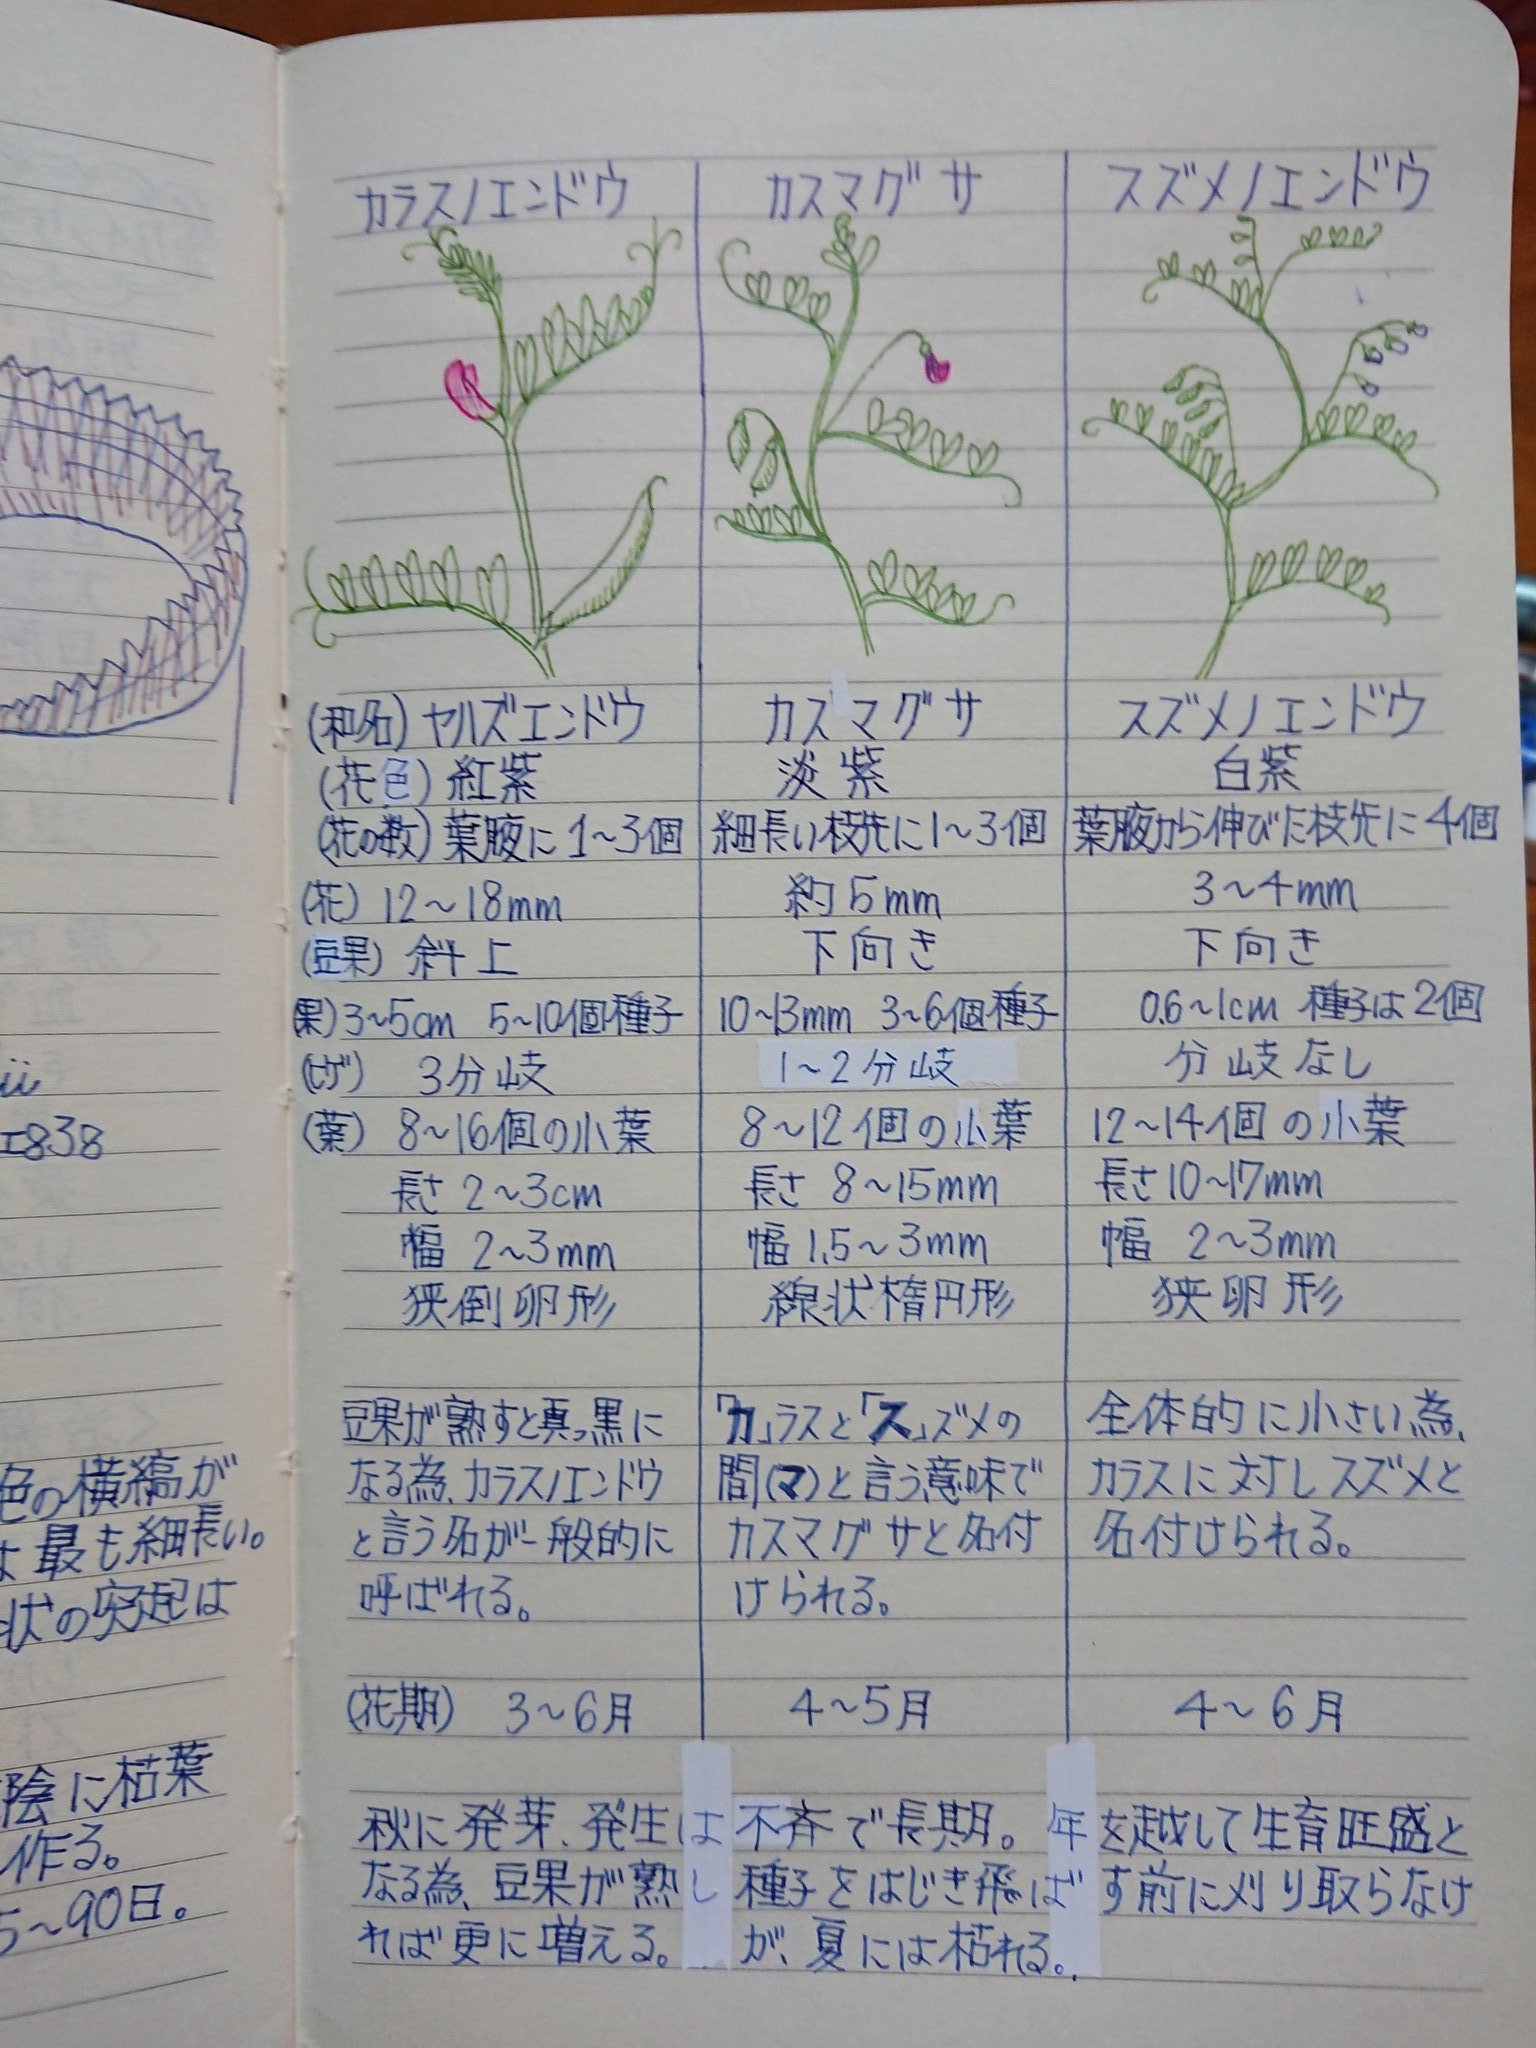 カラスノエンドウ カスマグサ スズメノエンドウ
(和名) ヤハズエンドウ カスマグサ スズメノエンドウ
(花色) 紅紫 淡紫 白紫
(花の数) 葉腋に1~3個 細長い枝先に1~3個 葉腋から伸びた枝先に4個
(花) 12~18mm 約5mm 3~4mm
(豆果) 斜上 下向き 下向き
(果) 3~5cm 5~10個種子 10~13mm 3~6個種子 0.6~1cm 種子は2個
(ヒゲ) 3分岐 1~2分岐 分岐なし
(葉) 8~16個の小葉 8~12個の小葉 12~14個の小葉
長さ 2~3cm 長さ 8~15mm 長さ10~17mm
幅 2~3mm 幅 1.5~3mm 幅 2~3mm
狭倒卵形 線状楕円形 狭卵形
豆果が熟すと真っ黒に
なる為、カラスノエンドウ
と言う名が一般的に
呼ばれる。
「カ」ラスと「ス」ズメの
間(マ)と言う意味で
カスマグサと名付
けられる。
全体的に小さい為、
カラスに対しスズメと
名付けられる。
(花期) 3~6月 4~5月 4~6月
秋に発芽、発生は不斉で長期。年を越して生育旺盛と
なる為、豆果が熟し種子をはじき飛ばす前に刈り取らなけ
れば更に増える。が、夏には枯れる。
ii
838
色の横縞が
最も細長い。
状の突起は
陰に枯葉
作る。
5~90日。